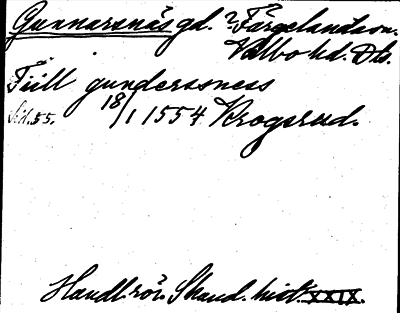 Gunnarsnäs gd. Färgelanda sn.
Valbo hd. Ds.
Till gunderssness
Sid. 55. 18/1 1554 Krogsrud.
Handl. rör. Skand. hist. XXIX.